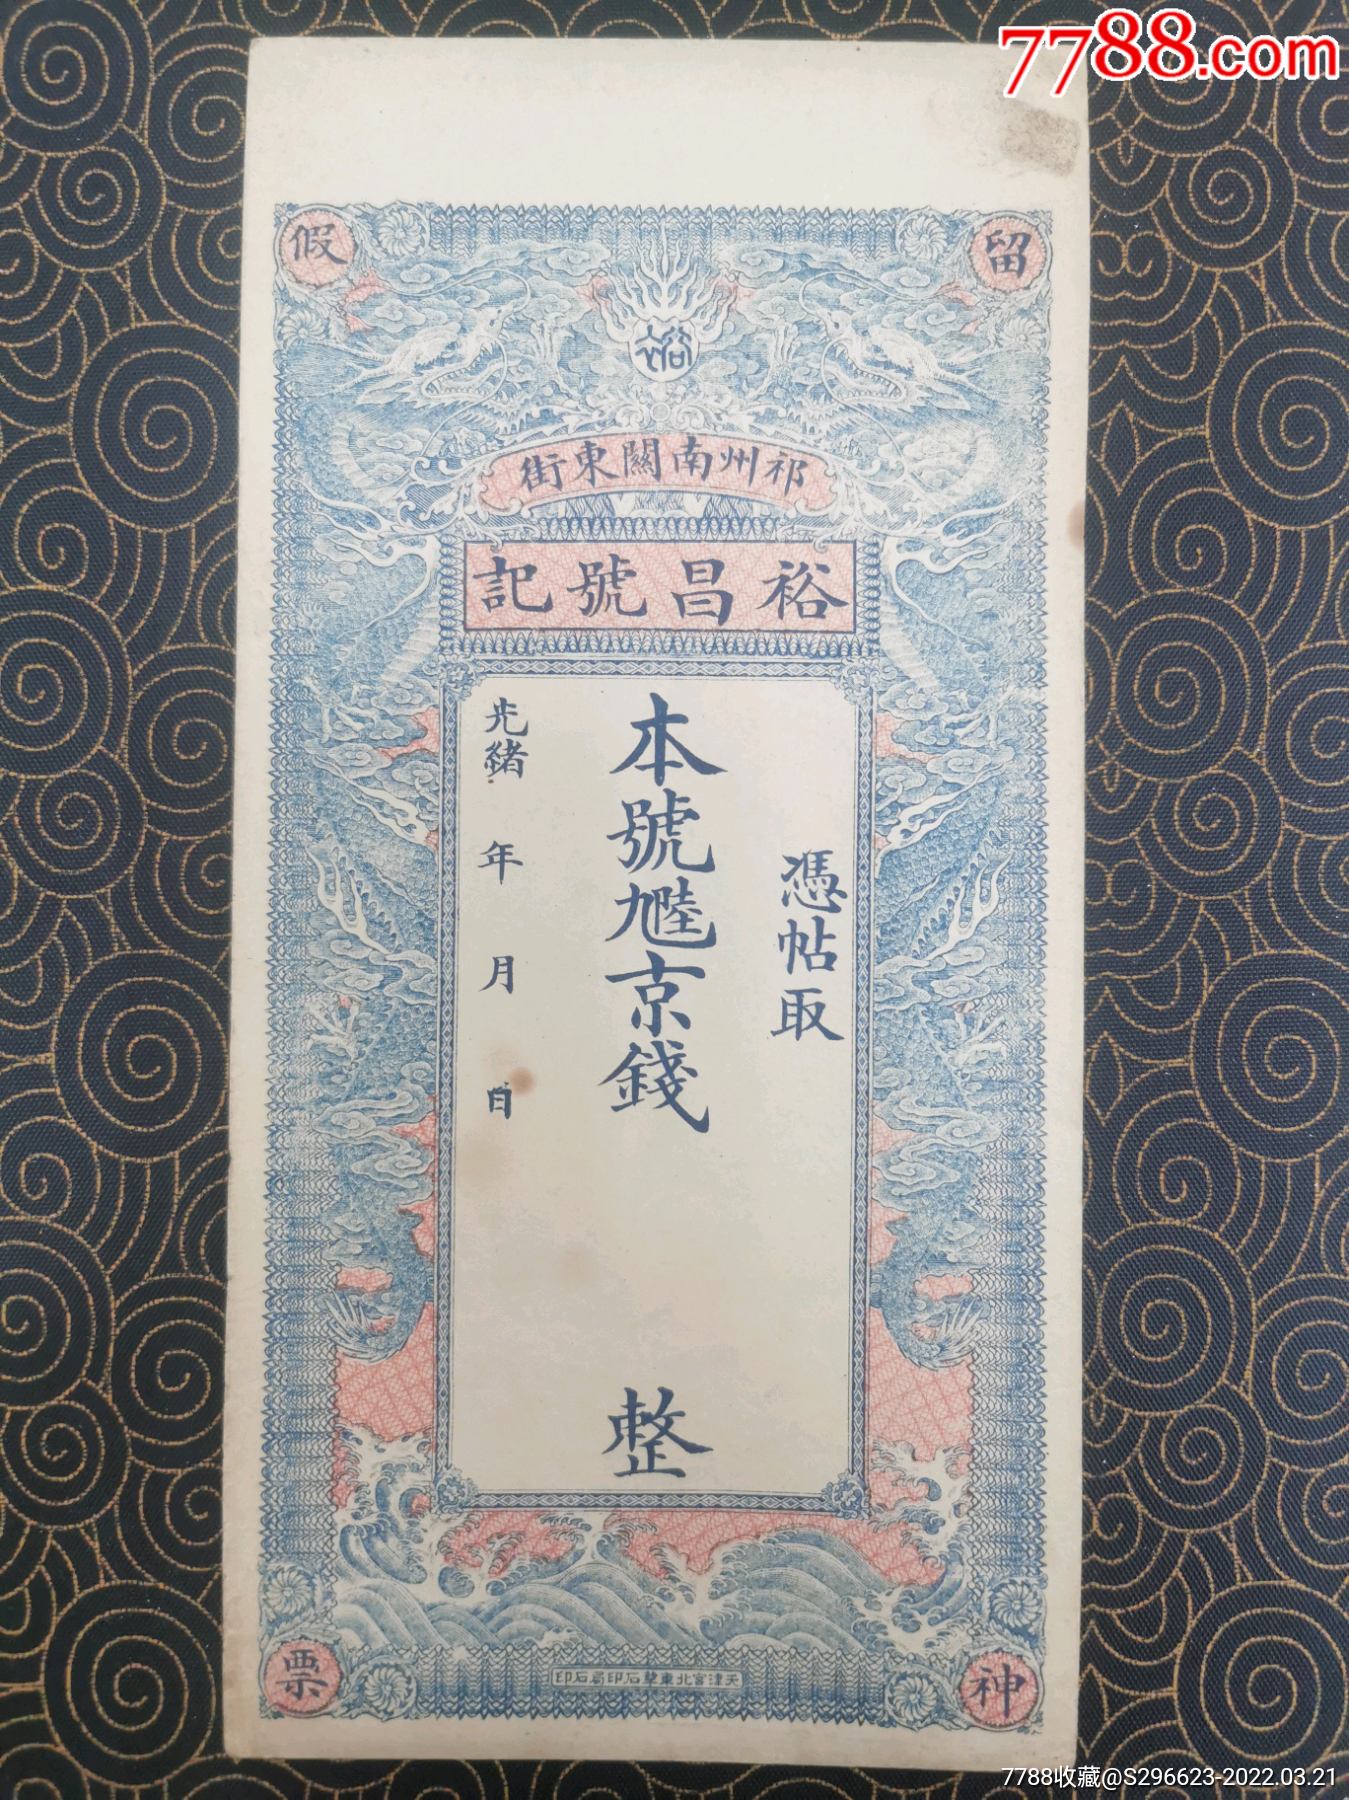 7788.com
留
神
假
票
裕
祁州南關東街
裕昌號記
憑帖取
本號
京錢
整
光緒 年 月 日
天津宮北東華石印局石印
7788收藏@S296623-2022.03.21